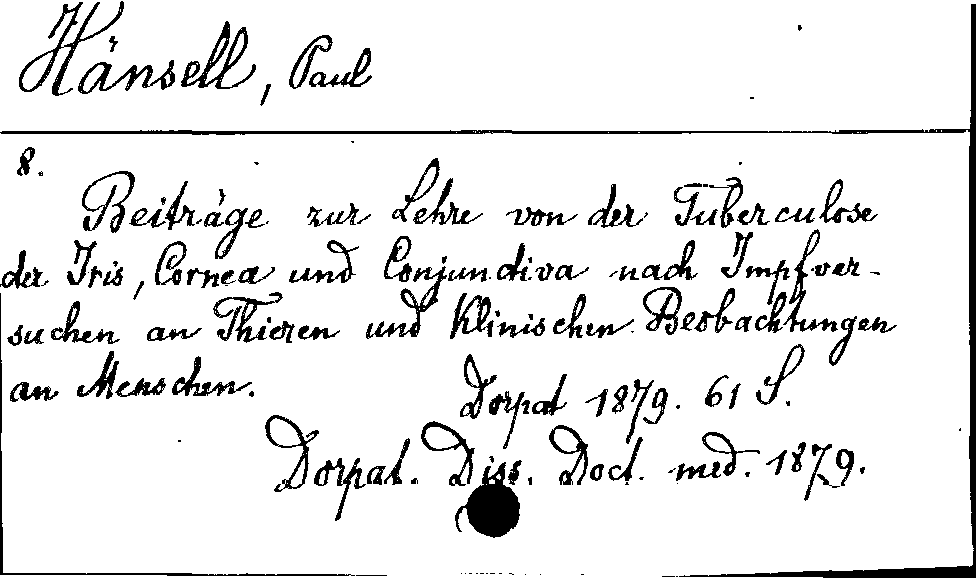 Hänsell, Paul
8.
Beiträge zur Lehre von der Tuberculose
der Iris, Cornea und Conjunctiva nach Impfver-
suchen an Thieren und klinischen Beobachtungen
an Menschen.
Dorpat 1879. 61 S.
Dorpat. Diss. Doct. med. 1879.